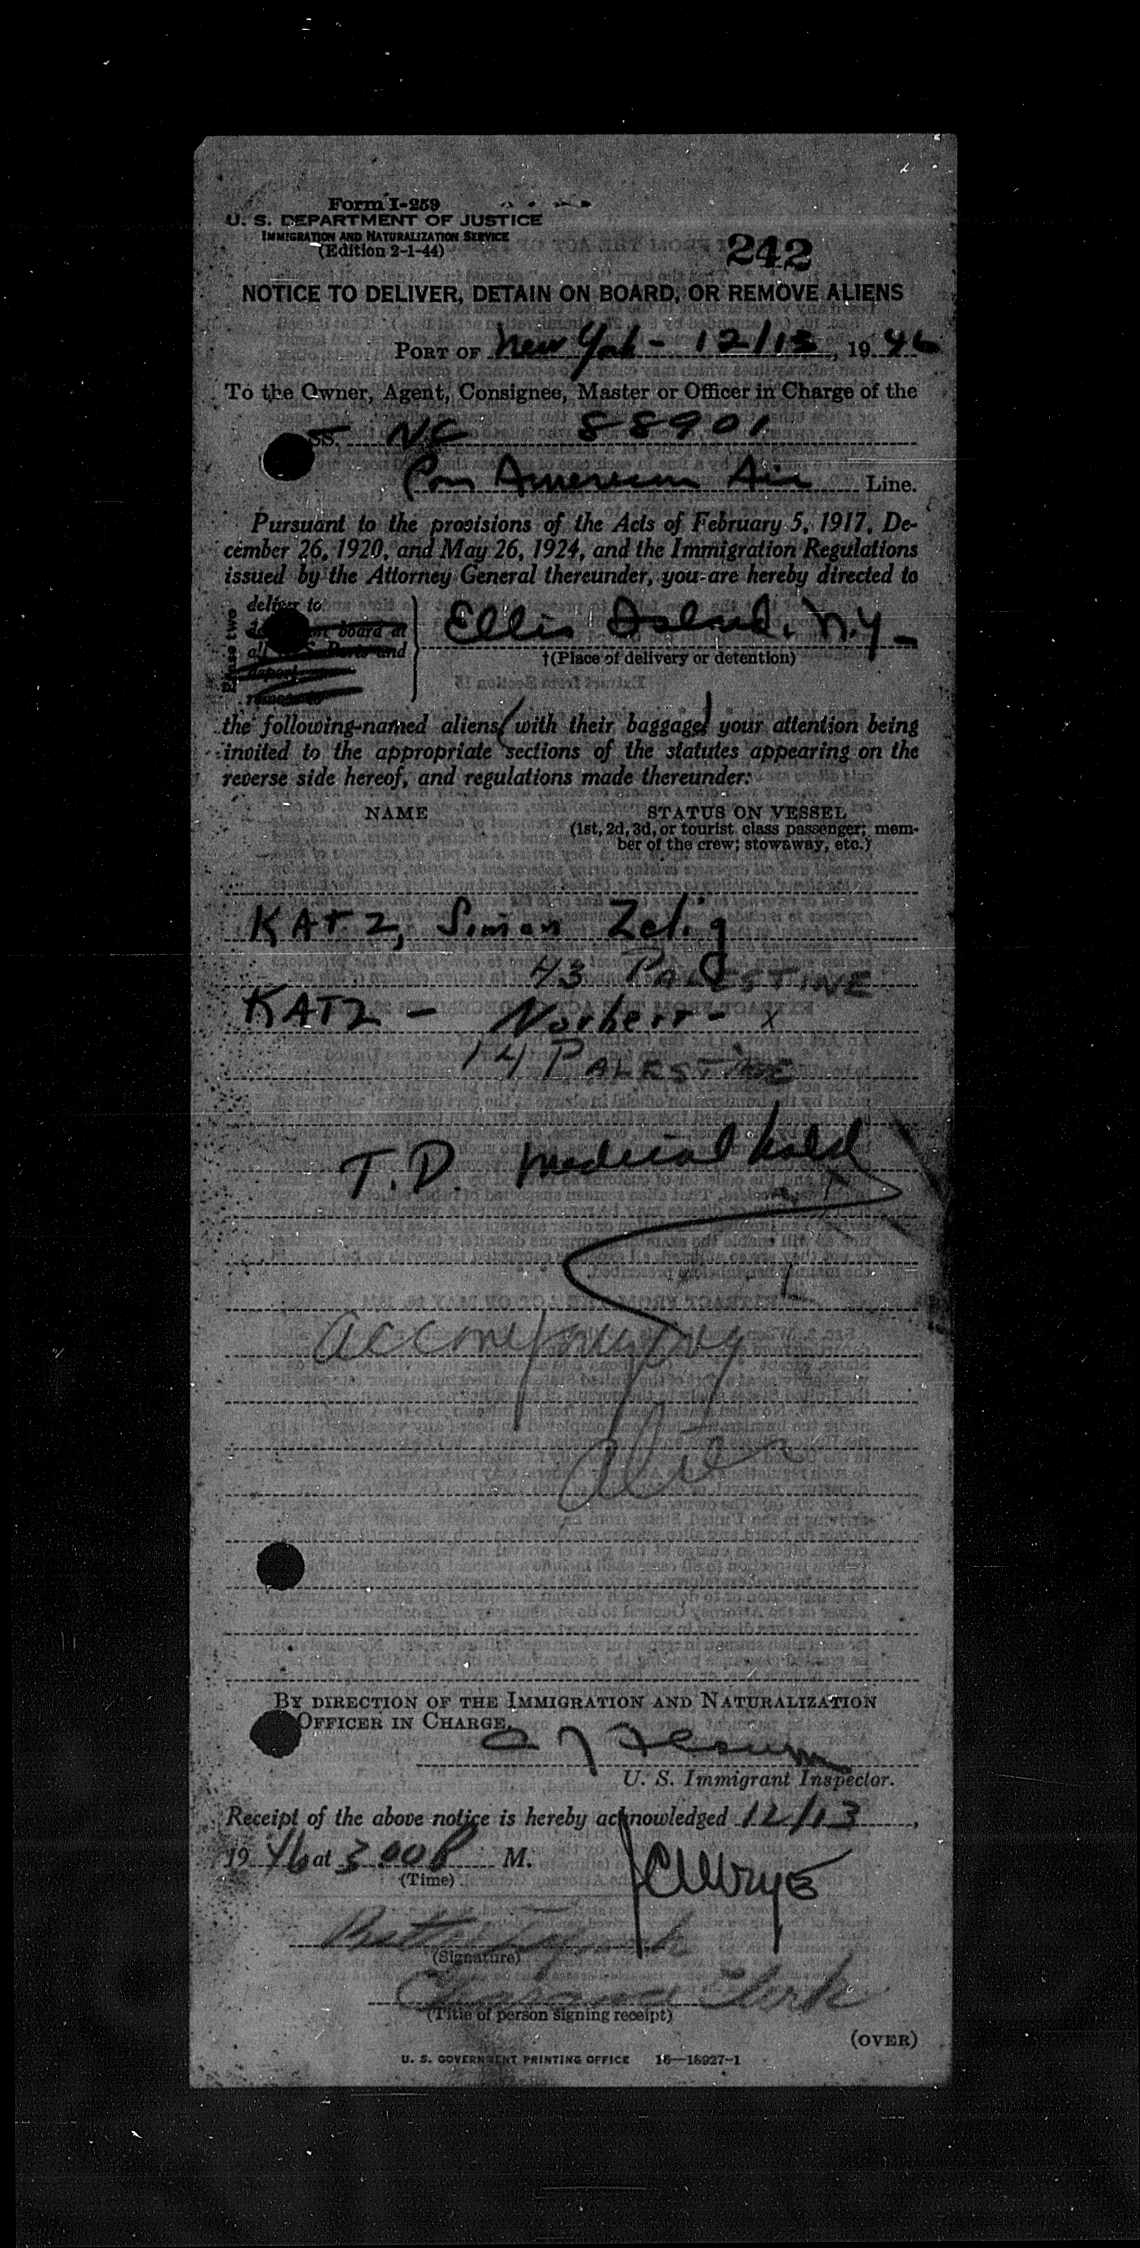 Form I-259
U. S. DEPARTMENT OF JUSTICE
IMMIGRATION AND NATURALIZATION SERVICE
(Edition 2-1-44)
242
NOTICE TO DELIVER, DETAIN ON BOARD, OR REMOVE ALIENS
PORT OF New York - 12/13, 1946
To the Owner, Agent, Consignee, Master or Officer in Charge of the
SS. NC 88901
Pan American Air Line.
Pursuant to the provisions of the Acts of February 5, 1917, De-
cember 26, 1920, and May 26, 1924, and the Immigration Regulations
issued by the Attorney General thereunder, you are hereby directed to
deliver to
on board at
all U. S. Ports and
remove to
Ellis Island, N.Y.
†(Place of delivery or detention)
the following-named aliens (with their baggage) your attention being
invited to the appropriate sections of the statutes appearing on the
reverse side hereof, and regulations made thereunder:
NAME STATUS ON VESSEL
(1st, 2d, 3d, or tourist class passenger; mem-
ber of the crew; stowaway, etc.)
KATZ, Simon Zelig
43 PALESTINE
KATZ - Norbert - x
14 PALESTINE
T.D. Medical hold
accompanying
alien
BY DIRECTION OF THE IMMIGRATION AND NATURALIZATION
OFFICER IN CHARGE.
U. S. Immigrant Inspector.
Receipt of the above notice is hereby acknowledged 12/13,
1946 at 3 00 P M.
(Time)
(Signature)
Clearance Clerk
(Title of person signing receipt)
(OVER)
U. S. GOVERNMENT PRINTING OFFICE 16—18927-1